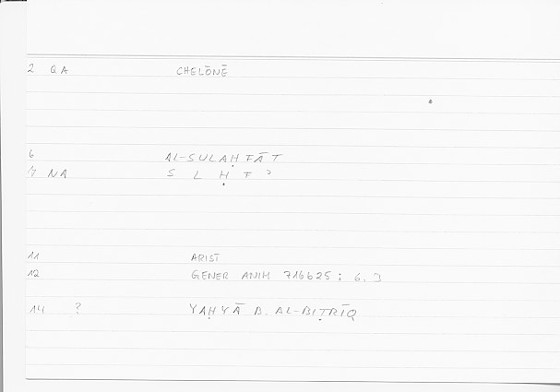 2 QA CHELŌNĒ
6 AL-SULAḤFĀT
7 NA S L Ḥ F 2
11 ARIST
12 GENER ANIM 716b25; 6.3
14 ? YAḤYĀ B. AL-BIṬRĪQ